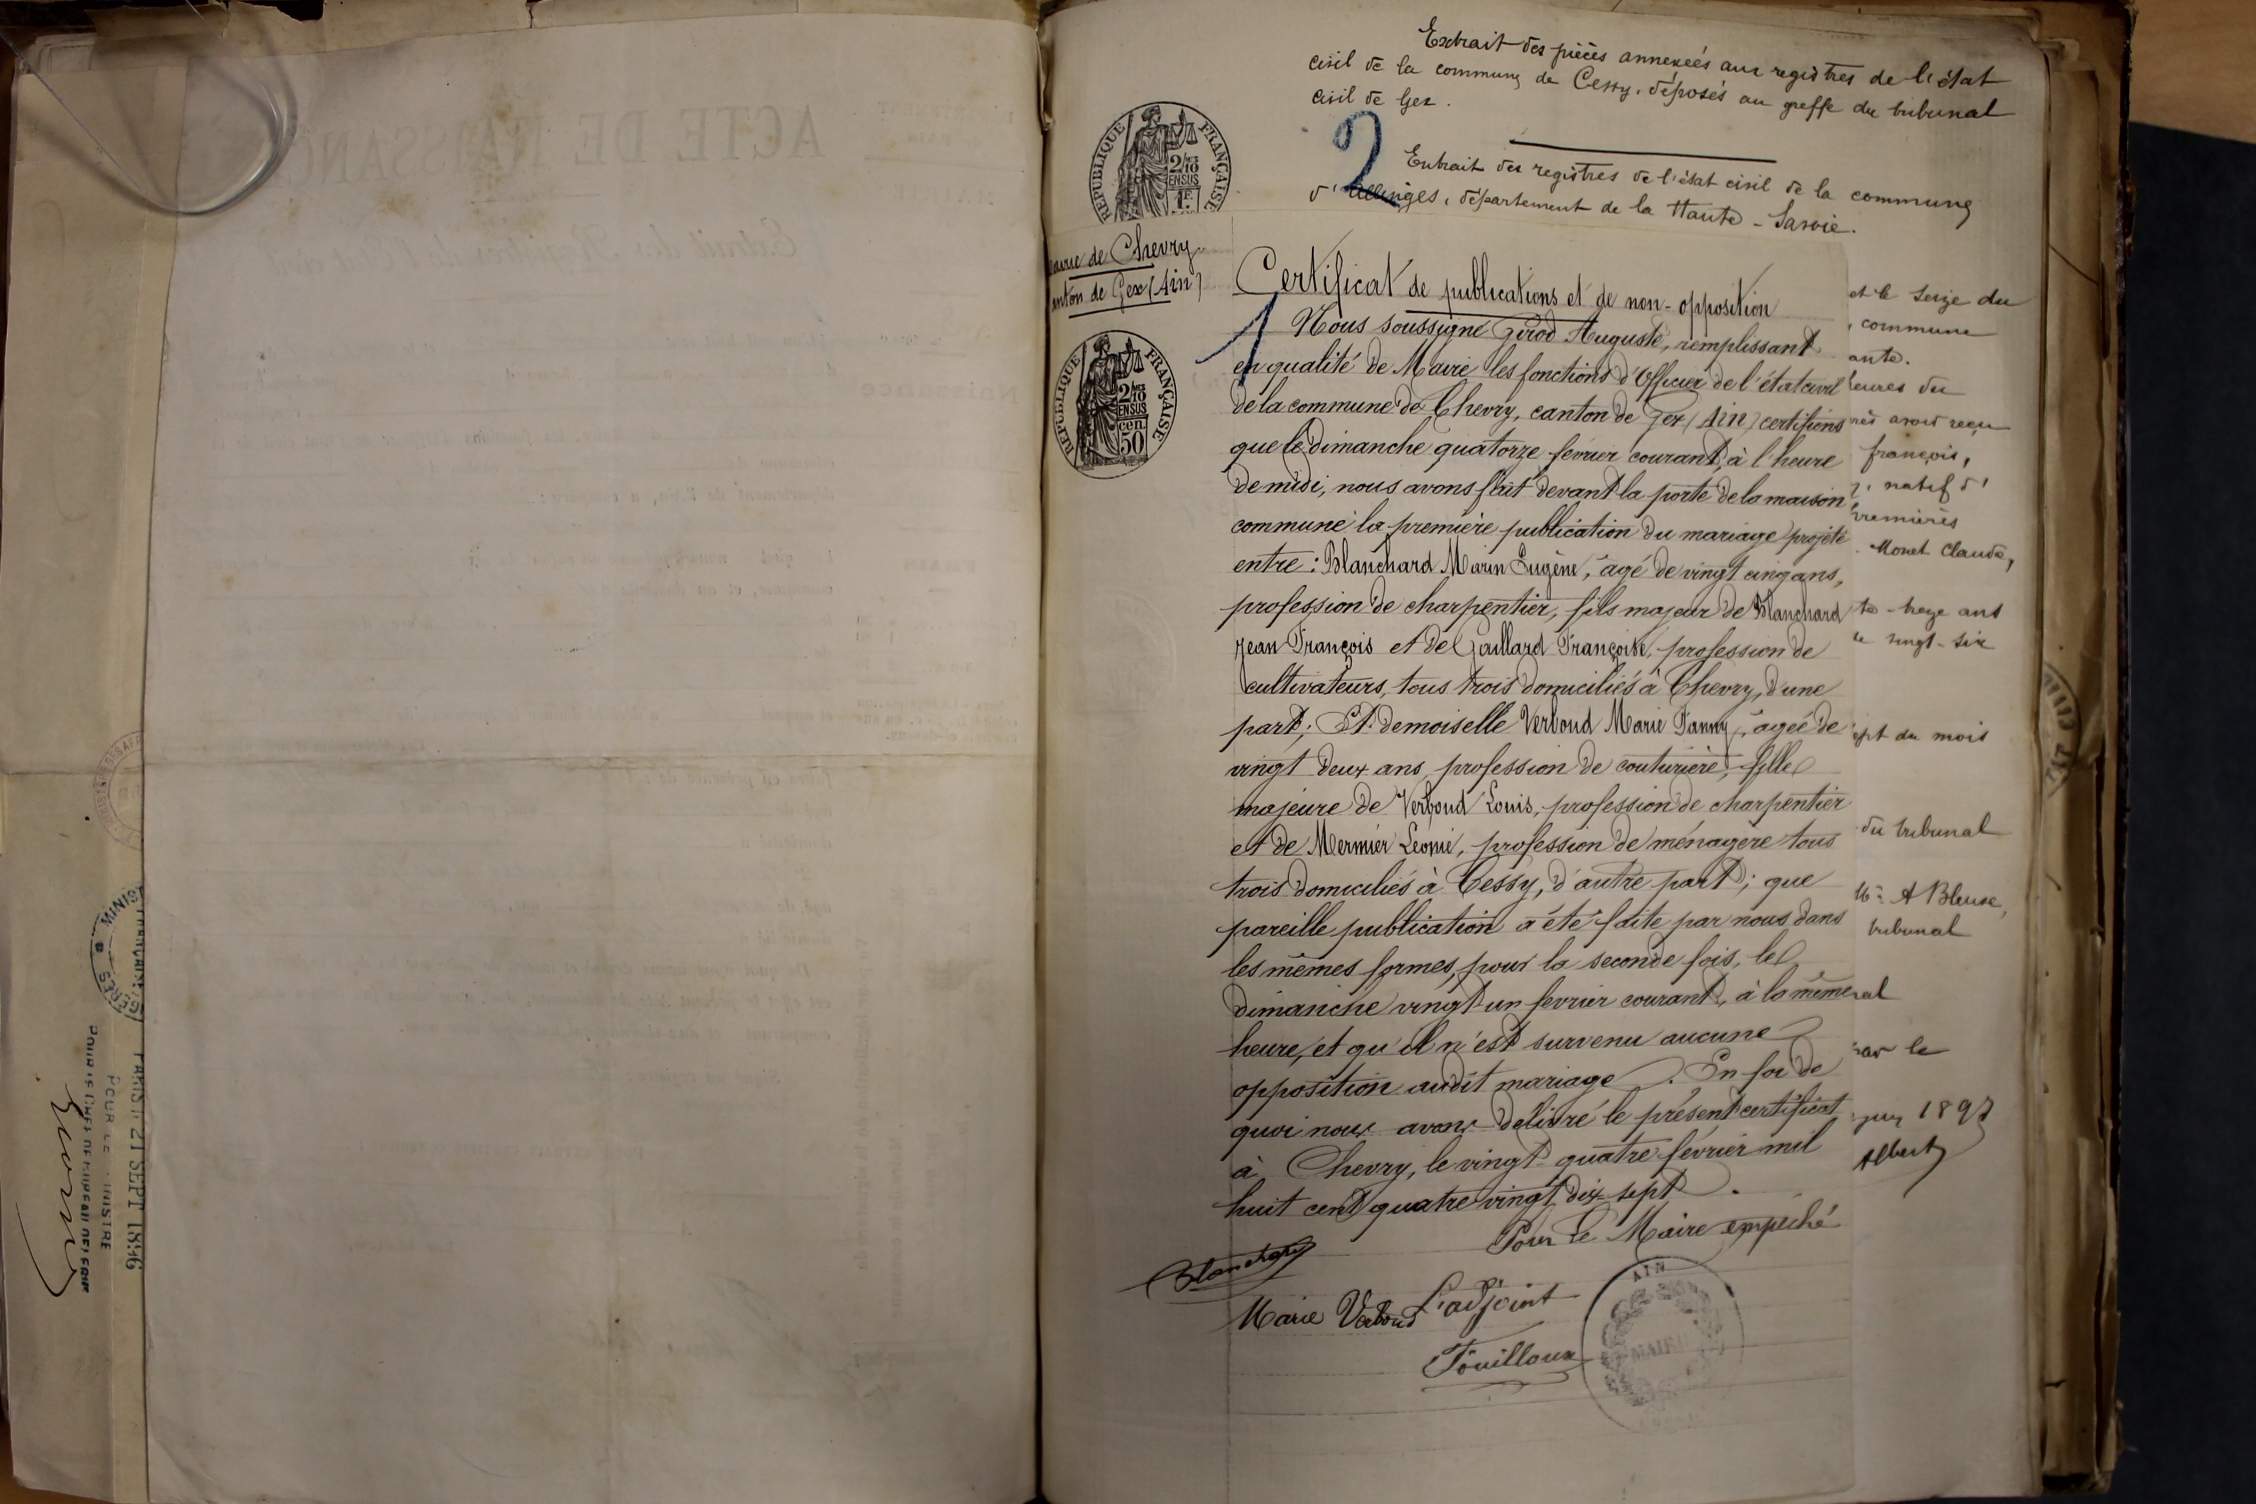 Extrait des pièces annexées aux registres de l'état
civil de la commune de Cessy, déposés au greffe du tribunal
civil de Gex.
2
Extrait des registres de l'état civil de la commune
d'Allinges, département de la Haute-Savoie.
REPUBLIQUE FRANÇAISE
2/10 EN SUS
1F.
Mairie de Chevry
canton de Gex (Ain)
REPUBLIQUE FRANÇAISE
2/10 EN SUS
50 cen.
1
Certificat de publications et de non-opposition
Nous soussigné Girod Auguste, remplissant
en qualité de Maire les fonctions d'Officier de l'état civil
de la commune de Chevry, canton de Gex (Ain) certifions
que le dimanche quatorze février courant, à l'heure
de midi, nous avons fait devant la porte de la maison
commune la première publication du mariage projeté
entre : Blanchard Marin Eugène, âgé de vingt cinq ans,
profession de charpentier, fils majeur de Blanchard
Jean François et de Gaillard Françoise, profession de
cultivateurs, tous trois domiciliés à Chevry, d'une
part; Et demoiselle Verboud Marie Fanny, âgée de
vingt deux ans, profession de couturière, fille
majeure de Verboud Louis, profession de charpentier
et de Mermier Léonie, profession de ménagère tous
trois domiciliés à Cessy, d'autre part; que
pareille publication a été faite par nous dans
les mêmes formes, pour la seconde fois, le
dimanche vingt un février courant, à la même
heure, et qu'il n'est survenu aucune
opposition audit mariage. En foi de
quoi nous avons délivré le présent certificat
à Chevry, le vingt quatre février mil
huit cent quatre vingt dix sept.
Pour le Maire empêché
Blanchard
Marie Verboud
L'adjoint
Fouilloux
AIN
MAIRIE
et le seize du
commune
ante.
heures du
rès avoir reçu
françois,
natif d'
premières
Monet Claude,
te-treze ans
le vingt-six
ept du mois
du tribunal
Me A Bleuse,
tribunal
nal
par le
1897
Albert
ACTE DE NAISSANCE
Extrait des Registres
Naissance
21 SEPT 1896
POUR LE MINISTRE